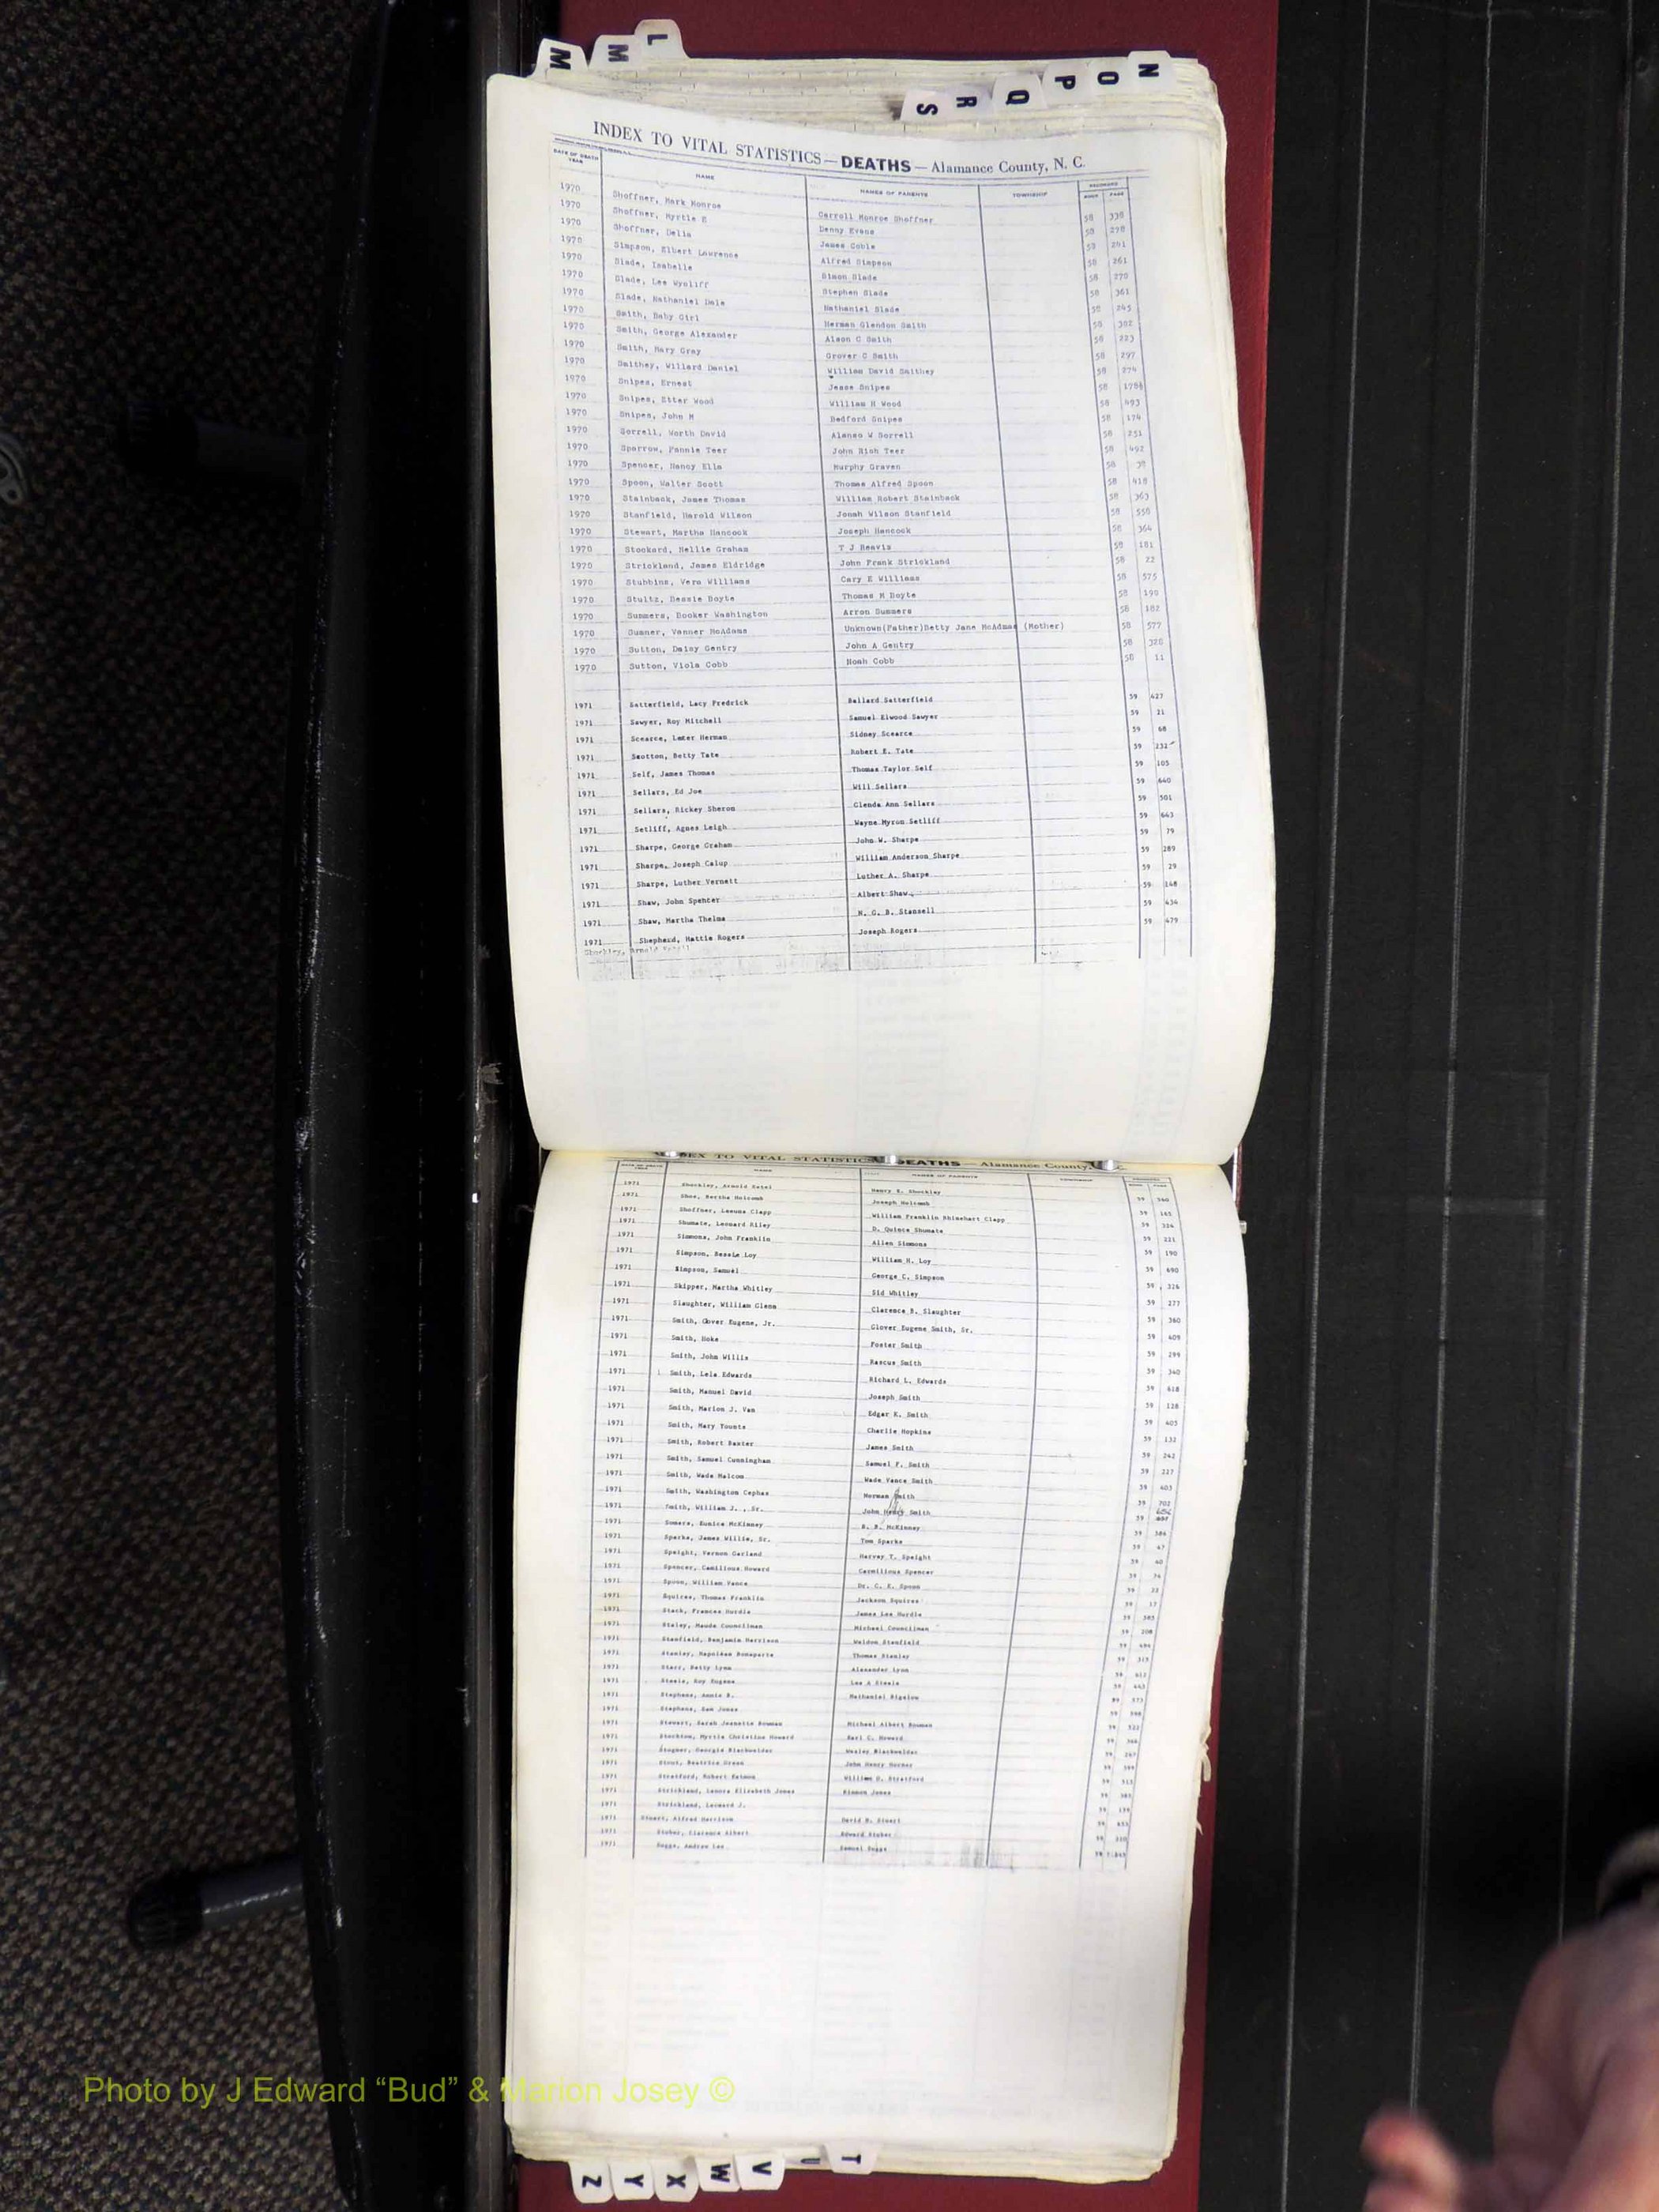 L
M
M
N
O
P
Q
R
S
INDEX TO VITAL STATISTICS — DEATHS — Alamance County, N. C.
DATE OF DEATH YEAR NAME NAMES OF PARENTS TOWNSHIP RECORDED BOOK PAGE
1970 Shoffner, Mark Monroe Carroll Monroe Shoffner 58 338
1970 Shoffner, Myrtle E Denny Evans 58 278
1970 Shoffner, Delia James Coble 58 241
1970 Simpson, Elbert Lawrence Alfred Simpson 58 261
1970 Slade, Isabelle Simon Slade 58 270
1970 Slade, Lee Wycliff Stephen Slade 58 361
1970 Slade, Nathaniel Dale Nathaniel Slade 58 245
1970 Smith, Baby Girl Herman Glendon Smith 58 382
1970 Smith, George Alexander Alson C Smith 58 223
1970 Smith, Mary Gray Grover C Smith 58 297
1970 Smithey, Willard Daniel William David Smithey 58 274
1970 Snipes, Ernest Jesse Snipes 58
1970 Snipes, Etter Wood William H Wood 58 493
1970 Snipes, John M Bedford Snipes 58 174
1970 Sorrell, Worth David Alonso W Sorrell 58 251
1970 Sparrow, Fannie Teer John Rich Teer 58 492
1970 Spencer, Nancy Ella Murphy Graven 58
1970 Spoon, Walter Scott Thomas Alfred Spoon 58 418
1970 Stainback, James Thomas William Robert Stainback 58 363
1970 Stanfield, Harold Wilson Jonah Wilson Stanfield 58 558
1970 Stewart, Martha Hancock Joseph Hancock 58 364
1970 Stockard, Nellie Graham T J Reavis 58 181
1970 Strickland, James Eldridge John Frank Strickland 58 22
1970 Stubbins, Vera Williams Cary E Williams 58 575
1970 Stultz, Bessie Boyte Thomas M Boyte 58 190
1970 Summers, Booker Washington Arron Summers 58 182
1970 Sumner, Venner McAdams Unknown(Father)Betty Jane McAdmas (Mother) 58 577
1970 Sutton, Daisy Gentry John A Gentry 58 328
1970 Sutton, Viola Cobb Noah Cobb 58 11
1971 Satterfield, Lacy Fredrick Ballard Satterfield 59 427
1971 Sawyer, Roy Mitchell Samuel Elwood Sawyer 59 21
1971 Scearce, Lester Herman Sidney Scearce 59 68
1971 Scotton, Betty Tate Robert E. Tate 59 232
1971 Self, James Thomas Thomas Taylor Self 59 105
1971 Sellars, Ed Joe Will Sellars 59 640
1971 Sellars, Rickey Sheron Glenda Ann Sellars 59 501
1971 Setliff, Agnes Leigh Wayne Myron Setliff 59 643
1971 Sharpe, George Graham John W. Sharpe 59 79
1971 Sharpe, Joseph Calup William Anderson Sharpe 59 289
1971 Sharpe, Luther Vernett Luther A. Sharpe 59 29
1971 Shaw, John Spencer Albert Shaw 59 148
1971 Shaw, Martha Thelma N. G. B. Stansell 59 434
1971 Shepherd, Hattie Rogers Joseph Rogers 59 479
Shockley, Arnold
INDEX TO VITAL STATISTICS DEATHS — Alamance County,
NAME NAMES OF PARENTS TOWNSHIP
1971 Shockley, Arnold Estel Henry E. Shockley 59 560
1971 Shoe, Bertha Holcomb Joseph Holcomb 59 165
1971 Shoffner, Leeuna Clapp William Franklin Rhinehart Clapp 59 326
1971 Shumate, Leonard Riley D. Quince Shumate 59 221
1971 Simmons, John Franklin Allen Simmons 59 190
1971 Simpson, Bessie Loy William H. Loy 59 690
1971 Simpson, Samuel George C. Simpson 59 326
1971 Skipper, Martha Whitley Sid Whitley 59 277
1971 Slaughter, William Glenn Clarence B. Slaughter 59 360
1971 Smith, Glover Eugene, Jr. Glover Eugene Smith, Sr. 59 409
1971 Smith, Hoke Foster Smith 59 299
1971 Smith, John Willis Rascus Smith 59 340
1971 Smith, Lela Edwards Richard L. Edwards 59 618
1971 Smith, Manuel David Joseph Smith 59 128
1971 Smith, Marion J. Van Edgar K. Smith 59 405
1971 Smith, Mary Younts Charlie Hopkins 59 132
1971 Smith, Robert Baxter James Smith 59 242
1971 Smith, Samuel Cunningham Samuel F. Smith 59 217
1971 Smith, Wade Malcom Wade Vance Smith 59 403
1971 Smith, Washington Cephas Norman Smith 59 702
1971 Smith, William J., Sr. John Henry Smith 59
1971 Somers, Eunice McKinney B. B. McKinney 59 386
1971 Sparks, James Willie, Sr. Tom Sparks 59 47
1971 Speight, Vernon Garland Harvey T. Speight 59 40
1971 Spencer, Camilious Howard Carmilious Spencer 59
1971 Spoon, William Vance Dr. C. E. Spoon 59
1971 Squires, Thomas Franklin Jackson Squires 59 17
1971 Stack, Frances Hurdle James Lee Hurdle 59
1971 Staley, Maude Councilman Michael Councilman 59 208
1971 Stanfield, Benjamin Harrison Weldon Stanfield 59
1971 Stanley, Napolean Bonaparte Thomas Stanley 59
1971 Starr, Betty Lynn Alexander Lynn 59
1971 Steele, Roy Eugene Lee A Steele 59
1971 Stephens, Annie B. Nathaniel Bigelow 59
1971 Stephens, Sam Jones 59
1971 Stewart, Sarah Jeanette Bowman Micheal Albert Bowman 59
1971 Stockton, Myrtle Christine Howard Earl C. Howard 59
1971 Stogner, Georgia Blackwelder Wesley Blackwelder 59
1971 Stout, Beatrice Green John Henry 59
1971 Stratford, Robert William D. Stratford 59
1971 Strickland, Lenora Elizabeth Jones Jones 59
1971 Strickland, Leonard J. 59
1971 Stuart, Alfred Harrison David R. Stuart 59
1971 Stuber, Clarence Albert Edward Stuber 59
1971 Suggs, Andrew Lee Samuel Suggs 59
Photo by J Edward “Bud” & Marion Josey ©
Z
Y
X
W
V
U
T